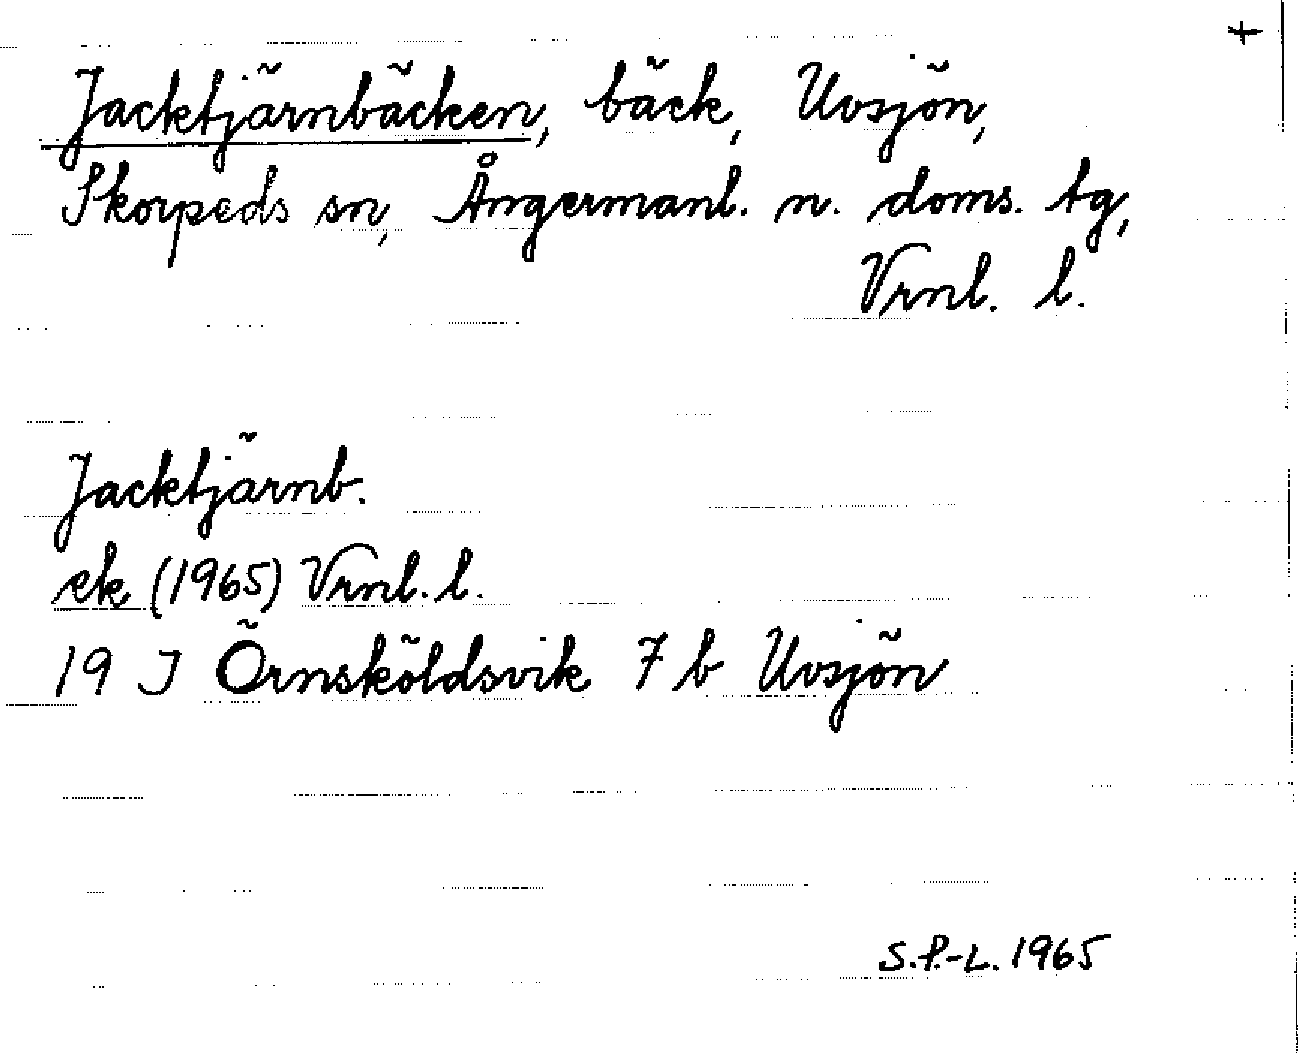 +
Jacktjärnbäcken, bäck, Uvsjön,
Skorpeds sn, Ångermanl. n. doms. tg,
Vrnl. l.
Jacktjärnb.
ek (1965) Vrnl. l.
19 J Örnsköldsvik 7 b Uvsjön
S.P.-L. 1965